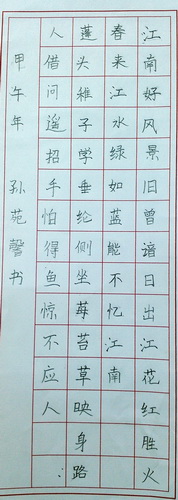 江南好风景旧曾谙日出江花红胜火
春来江水绿如蓝能不忆江南
蓬头稚子学垂纶侧坐莓苔草映身路
人借问遥招手怕得鱼惊不应人
甲午年 孙苑馨书